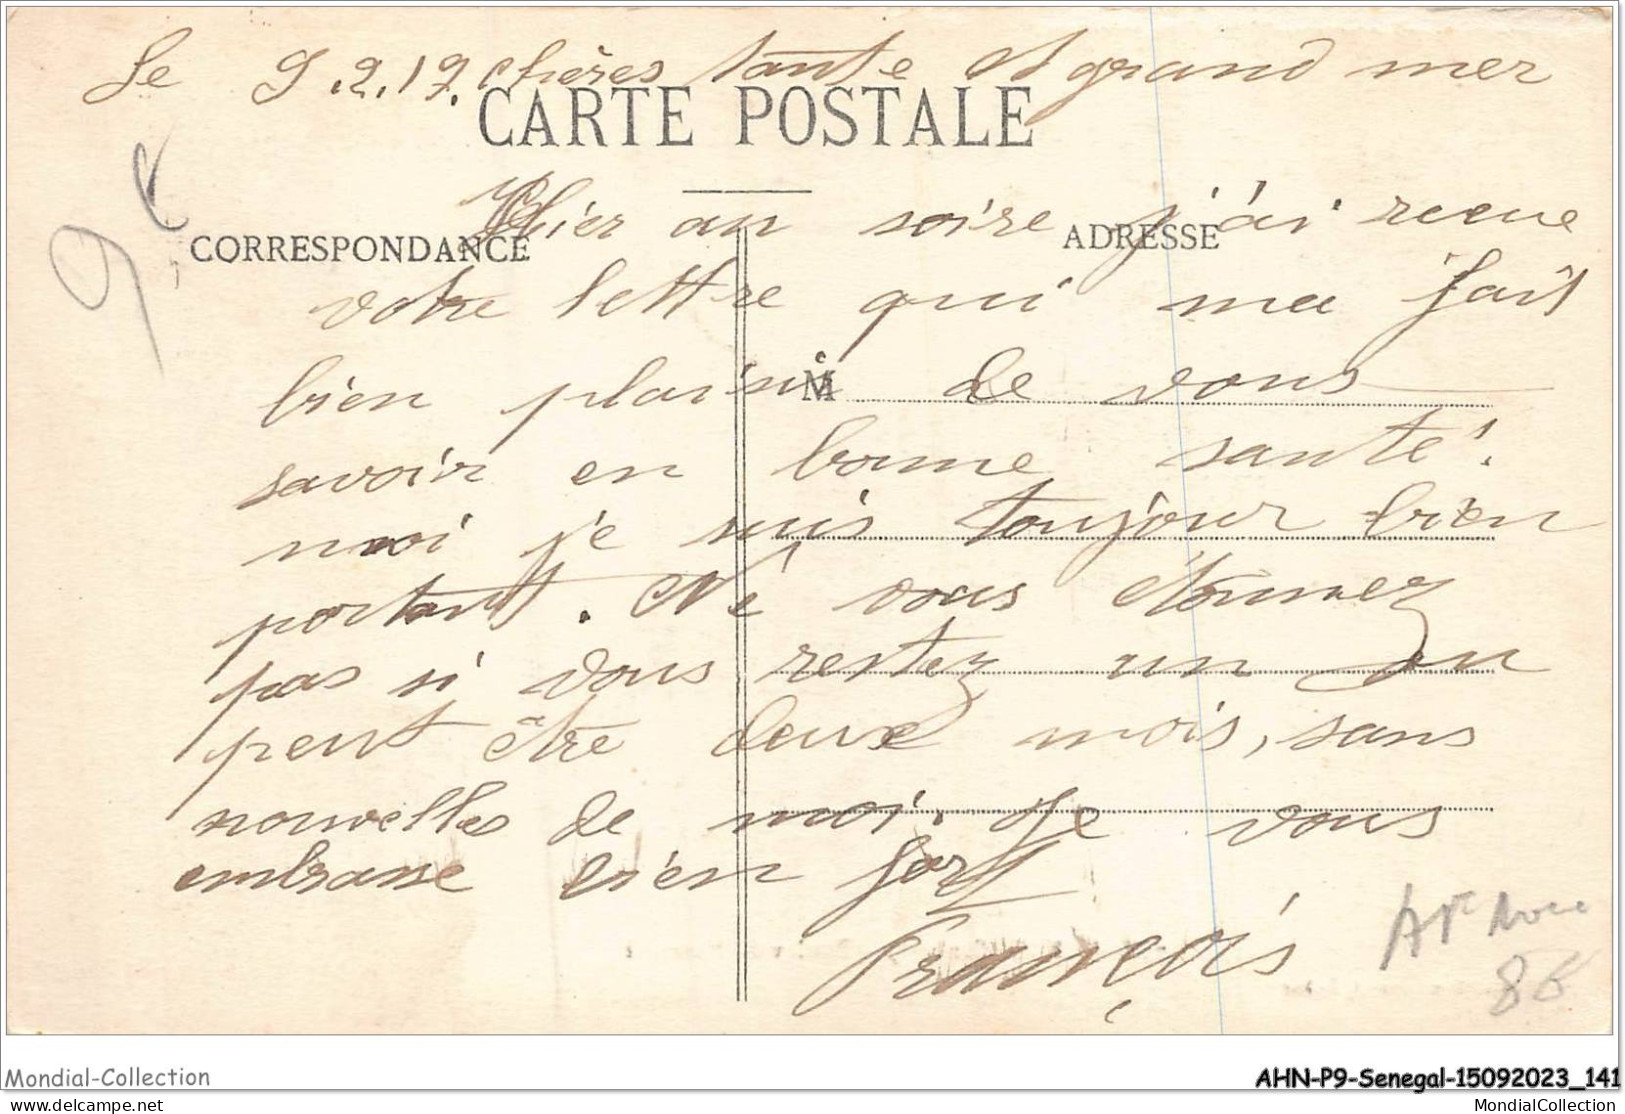 Le 9.2.19. chères tante et grand mer
CARTE POSTALE
Hier au soire j'ai recue
CORRESPONDANCE
ADRESSE
votre lettre qui ma fait
bien plaisir de vous
M
savoir en bonne santé!
moi je suis toujour bien
portant. Né vous étonnez
pas si vous restez un ou
peut être deux mois, sans
nouvelles de moi. Je vous
embrasse bien fort
François
9€
88
Mondial-Collection
AHN-P9-Senegal-15092023_141
www.delcampe.net
MondialCollection